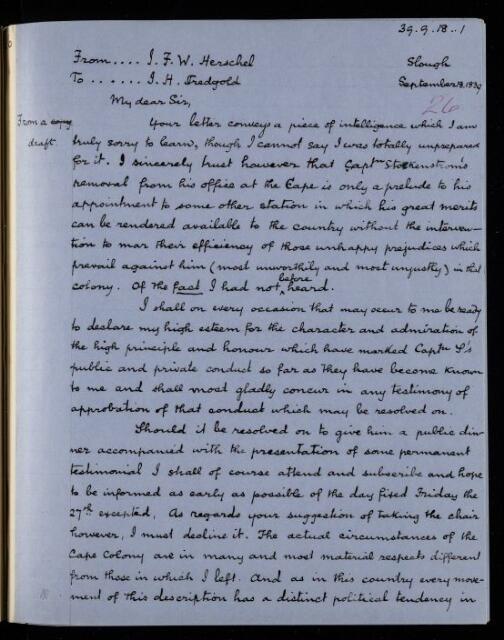 39.9.18..1
From.... J. F. W. Herschel Slough
To ...... J. H. Tredgold September 18, 1839
26
My dear Sir,
From a copy
draft.
Your letter conveys a piece of intelligence which I am
truly sorry to learn, though I cannot say I was totally unprepared
for it. I sincerely trust however that Captn Stockenstrom's
removal from his office at the Cape is only a prelude to his
appointment to some other station in which his great merits
can be rendered available to the country without the interven-
tion to mar their efficiency of those unhappy prejudices which
prevail against him (most unworthily and most unjustly) in that
colony. Of the fact I had not before heard.
I shall on every occasion that may occur to me be ready
to declare my high esteem for the character and admiration of
the high principle and honour which have marked Captn S's
public and private conduct so far as they have become known
to me and shall most gladly concur in any testimony of
approbation of that conduct which may be resolved on.
Should it be resolved on to give him a public din-
ner accompanied with the presentation of some permanent
testimonial I shall of course attend and subscribe and hope
to be informed as early as possible of the day fixed Friday the
27th excepted. As regards your suggestion of taking the chair
however, I must decline it. The actual circumstances of the
Cape Colony are in many and most material respects different
from those in which I left. And as in this country every move-
ment of this description has a distinct political tendency in